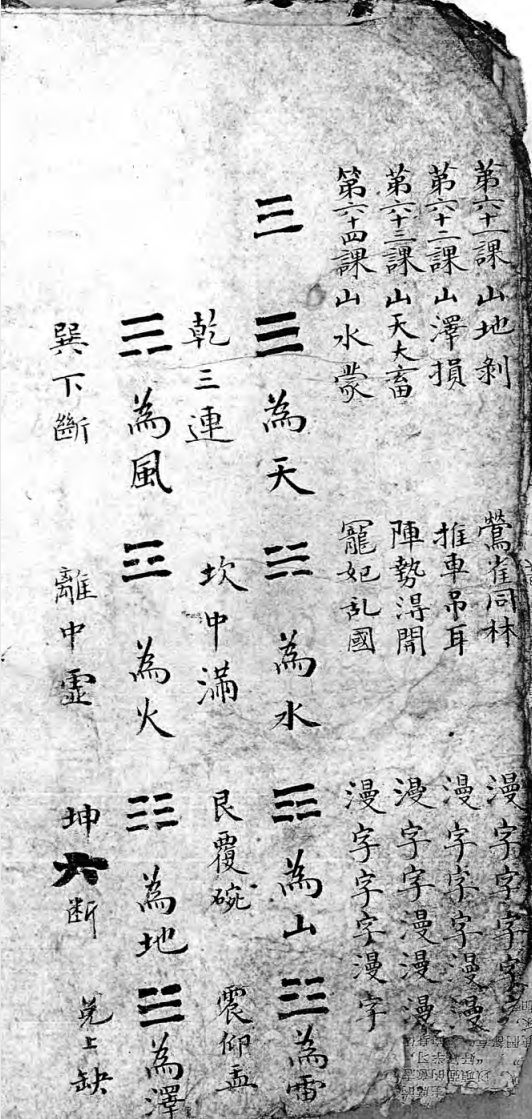 第六十一課山地剝 鶯雀同林 漫字字字字
第六十二課山澤損 推車吊耳 漫字字字漫漫
第六十三課山天大畜 陣勢淂開 漫字字漫漫漫
第六十四課山水蒙 寵妃乱國 漫字字字漫字
三 ☰為天 ☵為水 ☶為山 ☳為雷
乾三連 坎中滿 艮覆碗 震仰盂
☴為風 ☲為火 ☷為地 ☱為澤
巽下斷 離中虛 坤六断 兌上缺